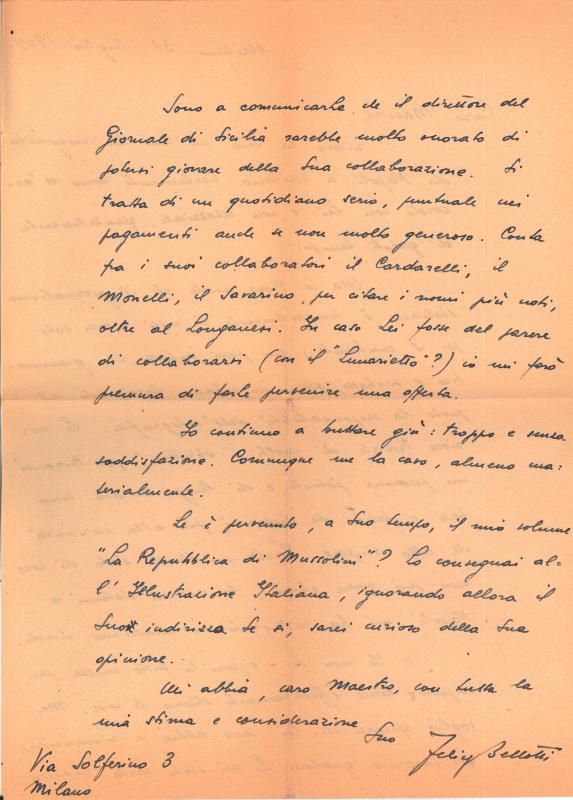 Sono a comunicarLe che il direttore del
Giornale di Sicilia sarebbe molto onorato di
potersi giovare della Sua collaborazione. Si
tratta di un quotidiano serio, puntuale nei
pagamenti anche se non molto generoso. Conta
fra i suoi collaboratori il Cardarelli, il
Monelli, il Savarino, per citare i nomi più noti,
oltre al Longanesi. In caso Lei fosse del parere
di collaborarvi (con il "Lunarietto"?) io mi farò
premura di farle pervenire una offerta.
Io continuo a buttare giù: troppo e senza
soddisfazione. Comunque me la cavo, almeno ma-
terialmente.
Le è pervenuto, a Suo tempo, il mio volume
"La Repubblica di Mussolini"? Lo consegnai al-
l'Illustrazione Italiana, ignorando allora il
Suo indirizzo. Se sì, sarei curioso della Sua
opinione.
Mi abbia, caro Maestro, con tutta la
mia stima e considerazione
Suo Felice Bellotti
Via Solferino 3
Milano